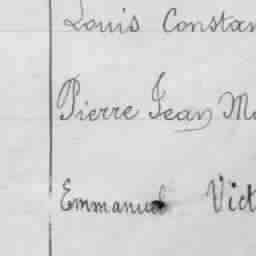 Louis Constan
Pierre Jean Ma
Emmanuel Vict